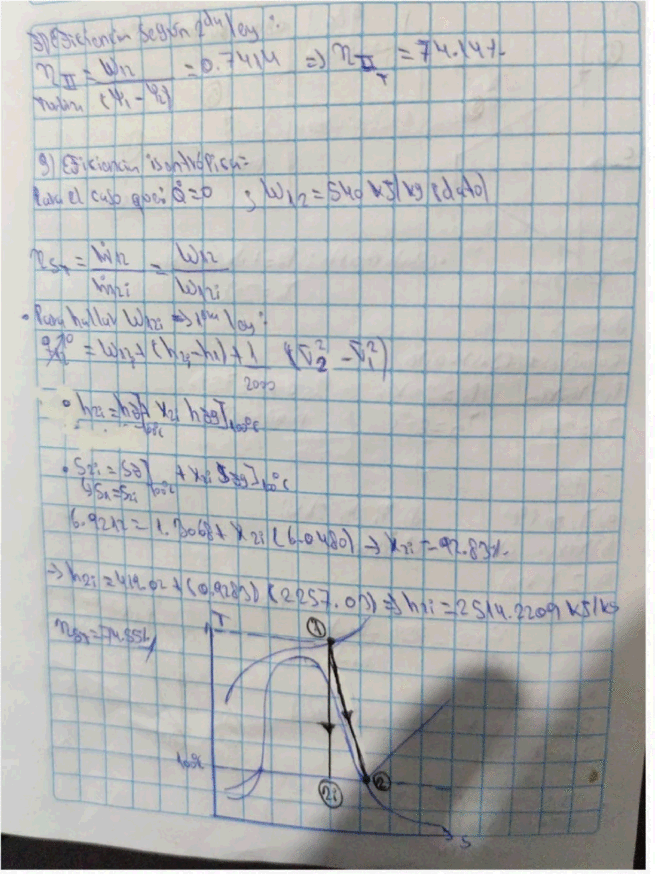 Eficiencia según 2da ley:
η II = W12 / (Ψ1 - Ψ2) = 0.7414 => η II T = 74.14%
g) Eficiencia isentrópica:
Para el caso que: Q̇=0 ; W12 = 540 kJ/kg (dato)
η ST = Ẇ12 / Ẇ12i = W12 / W12i
• Para hallar W12i => 1era ley:
0 = W12i + (h2i - h1) + 1/2000 (V̄2² - V̄1²)
• h2i = hf]100°C + X2i hfg]100°C
• S2i = Sf]100°C + X2i Sfg]100°C
S1 = S2i
6.9212 = 1.3068 + X2i (6.0480) → X2i = 92.83%
=> h2i = 419.02 + (0.9283) (2257.03) => h2i = 2514.2209 kJ/kg
η ST = 74.55%
T
1
100°C
2
2i
S